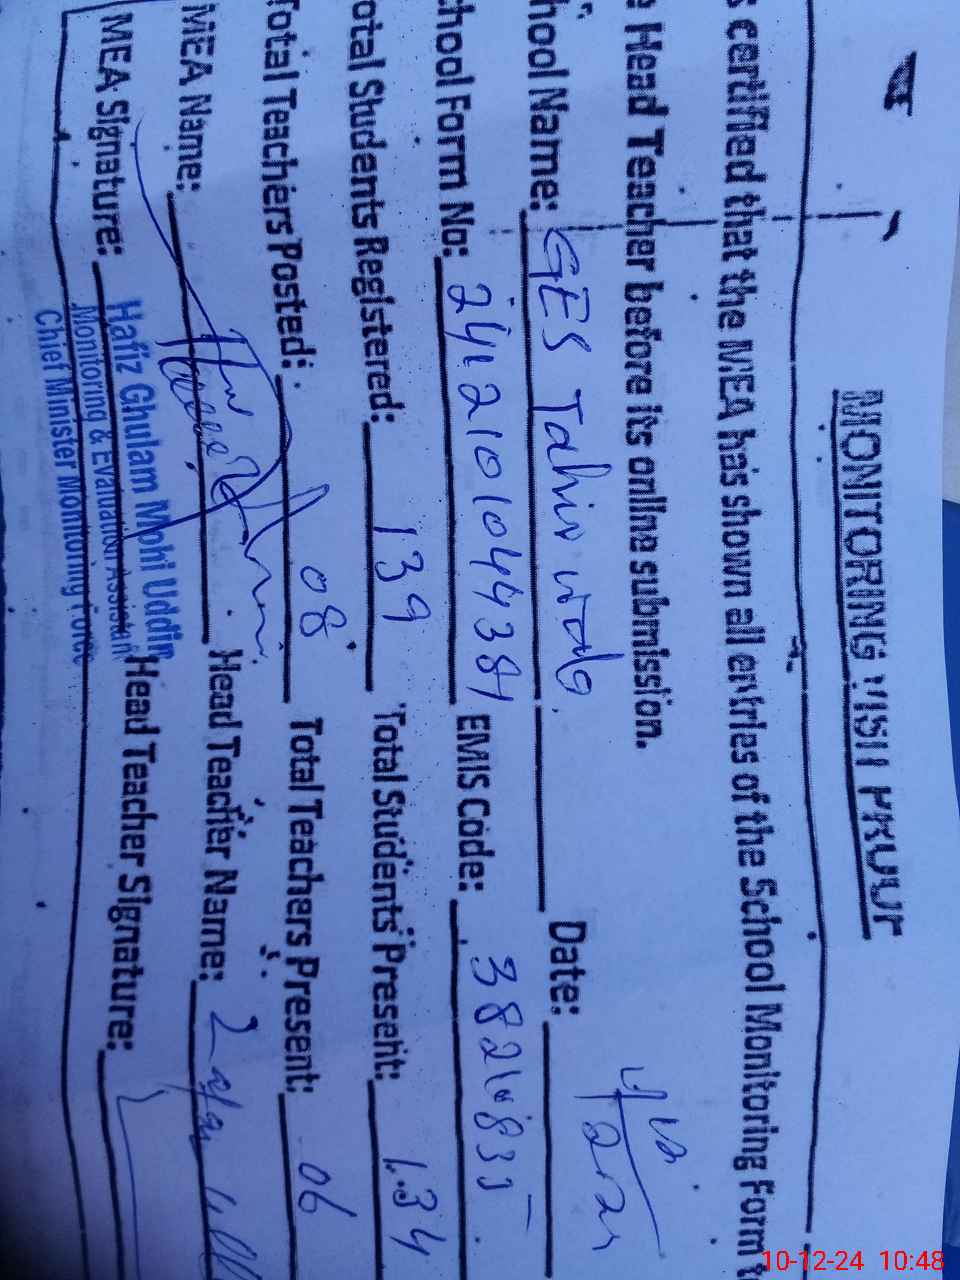 MONITORING VISIT PROOF
s certified that the MEA has shown all entries of the School Monitoring Form t
e Head Teacher before its online submission.
hool Name: GES Tahir Date:
chool Form No: EMIS Code:
otal Students Registered: 139 Total Students Present: 134
Total Teachers Posted: 08 Total Teachers Present: 06
MEA Name: Head Teacher Name:
MEA Signature: Head Teacher Signature:
Hafiz Ghulam Mohi Uddin
Monitoring & Evaluation Assistant
Chief Minister Monitoring Force
10-12-24 10:48